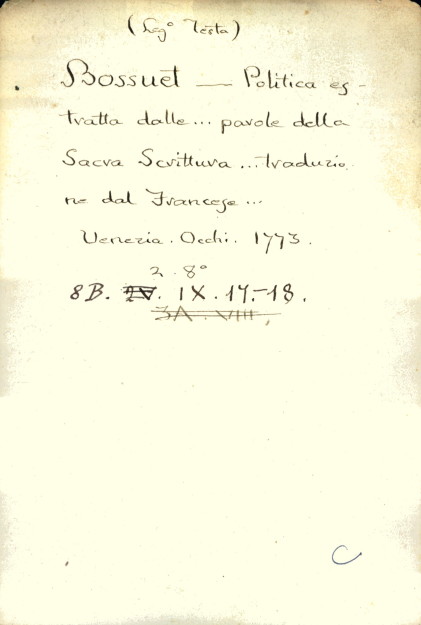 (Leg° Testa)
Bossuet — Politica es-
tratta dalle... parole della
Sacra Scrittura... traduzio
ne dal Francese...
Venezia. Occhi. 1773.
2. 8°
8B. IX. 17.-18.
3A. VIII
C